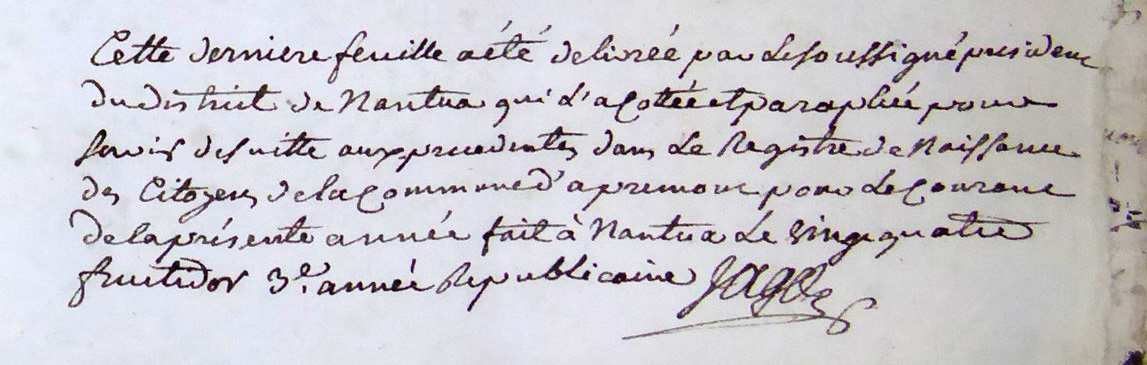 Cette derniere feuille a été delivrée par le soussigné president
du district de Nantua qui l'a Cottée et paraphée pour
servir de suitte aux precedentes dans le Registre de Naissance
des Citoyens de la Commune d'apremont pour le Courant
de la présente année fait à Nantua le vingt quatre
fructidor 3.e année Republicaine